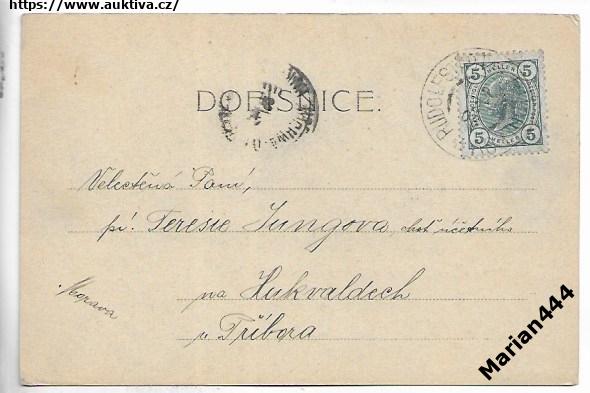 https://www.auktiva.cz/
DOPISNICE.
5 HELLER 5
5 HELLER 5
RUDOLFS
Velectěná Paní,
pí. Teresie Jungova, choť účetního
na Hukvaldech
u Příbora
Morava
Marian444